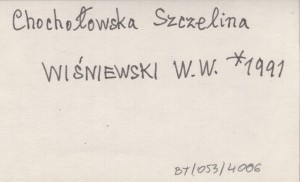 Chochołowska Szczelina
WIŚNIEWSKI W.W. *1991
BT/053/4006